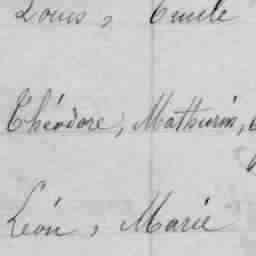 Louis, Emile
Théodore, Mathurin,
Léon, Marie